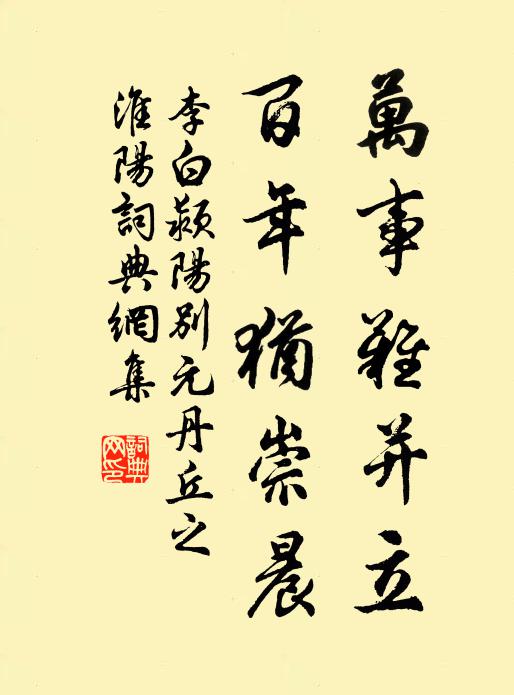 萬事難并立
百年猶崇晨
李白颍陽別元丹丘之
淮陽詞典網集
詞典网印